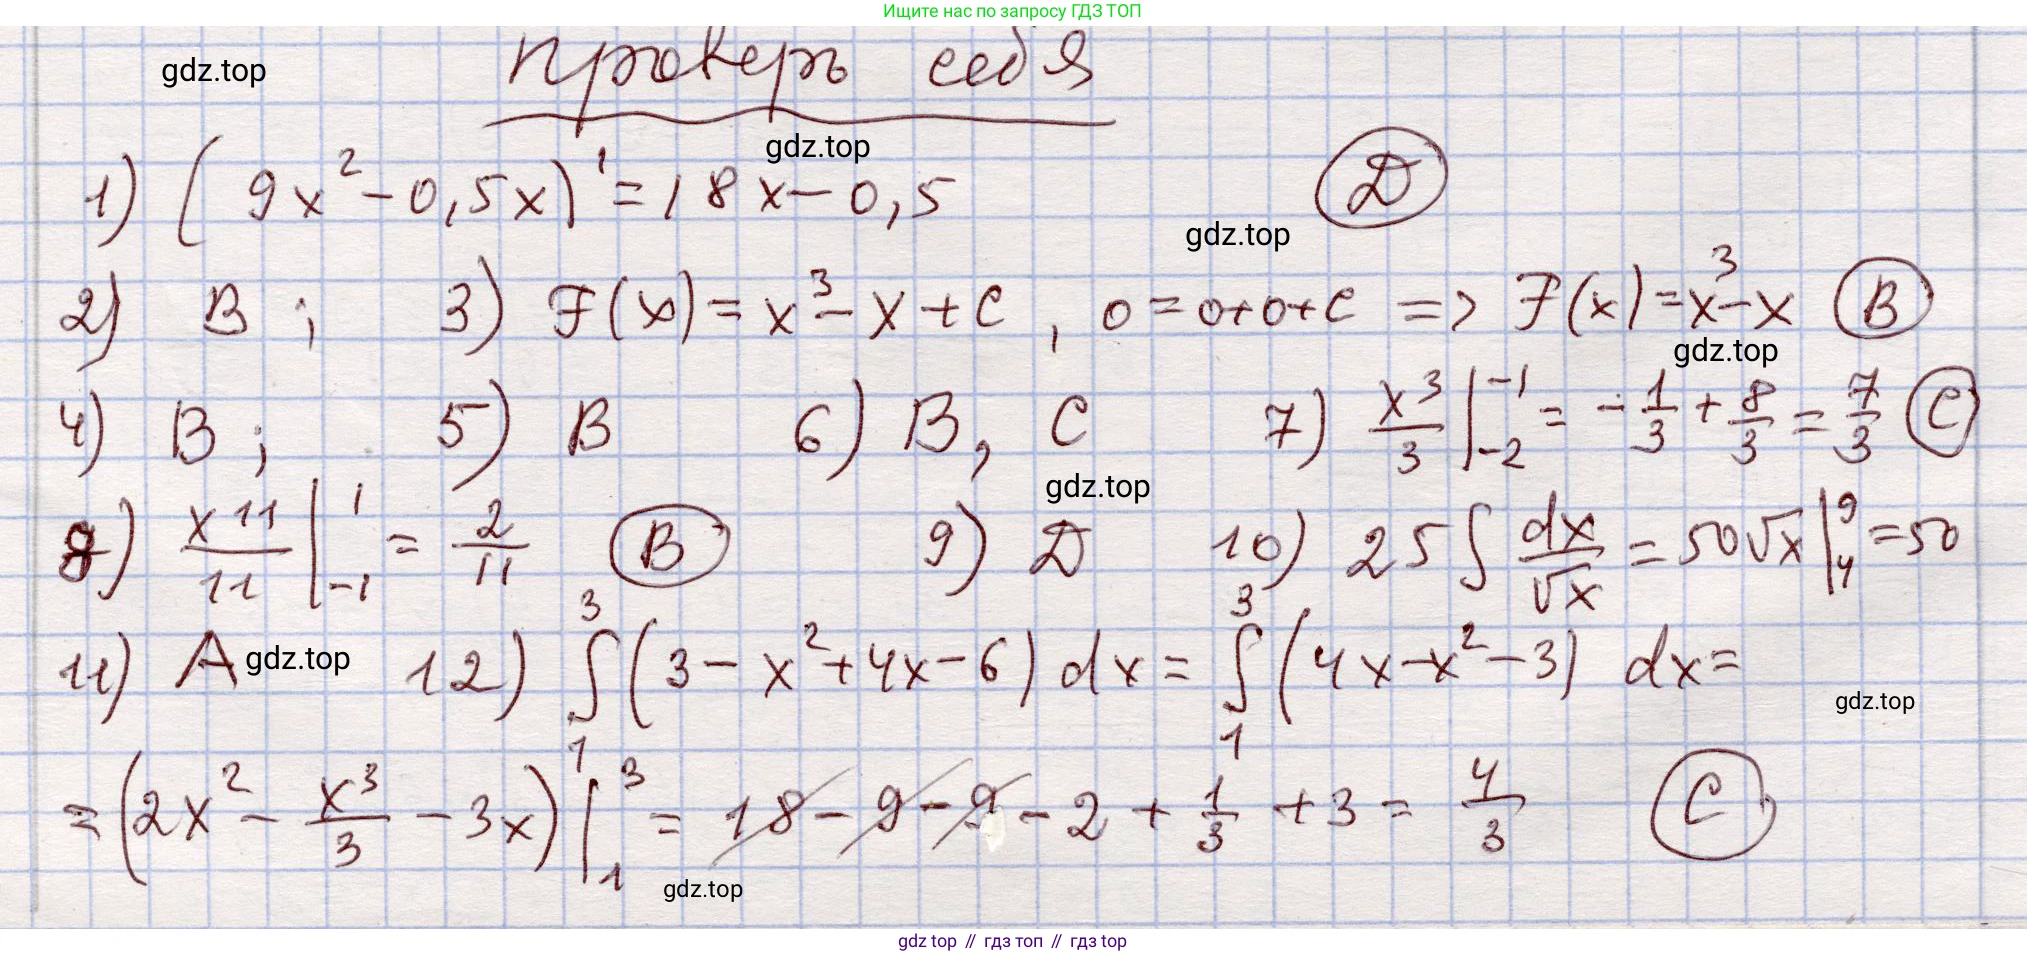 Ищите нас по запросу ГДЗ ТОП
Проверь себя
gdz.top
gdz.top
1) (9x² - 0,5x)' = 18x - 0,5 D
gdz.top
2) B ; 3) F(x) = x³ - x + C , 0 = 0+0+C => F(x) = x³ - x B
gdz.top
4) B ; 5) B 6) B, C 7) x³/3 |₋₂⁻¹ = - 1/3 + 8/3 = 7/3 C
gdz.top
8) x¹¹/11 |₋₁¹ = 2/11 B 9) D 10) 25 ∫ dx/√x = 50√x |₄⁹ = 50
11) A gdz.top 12) ∫₁³ (3 - x² + 4x - 6) dx = ∫₁³ (4x - x² - 3) dx =
gdz.top
= (2x² - x³/3 - 3x) |₁³ = 18 - 9 - 9 - 2 + 1/3 + 3 = 4/3 C
gdz.top
gdz top // гдз топ // гдз top